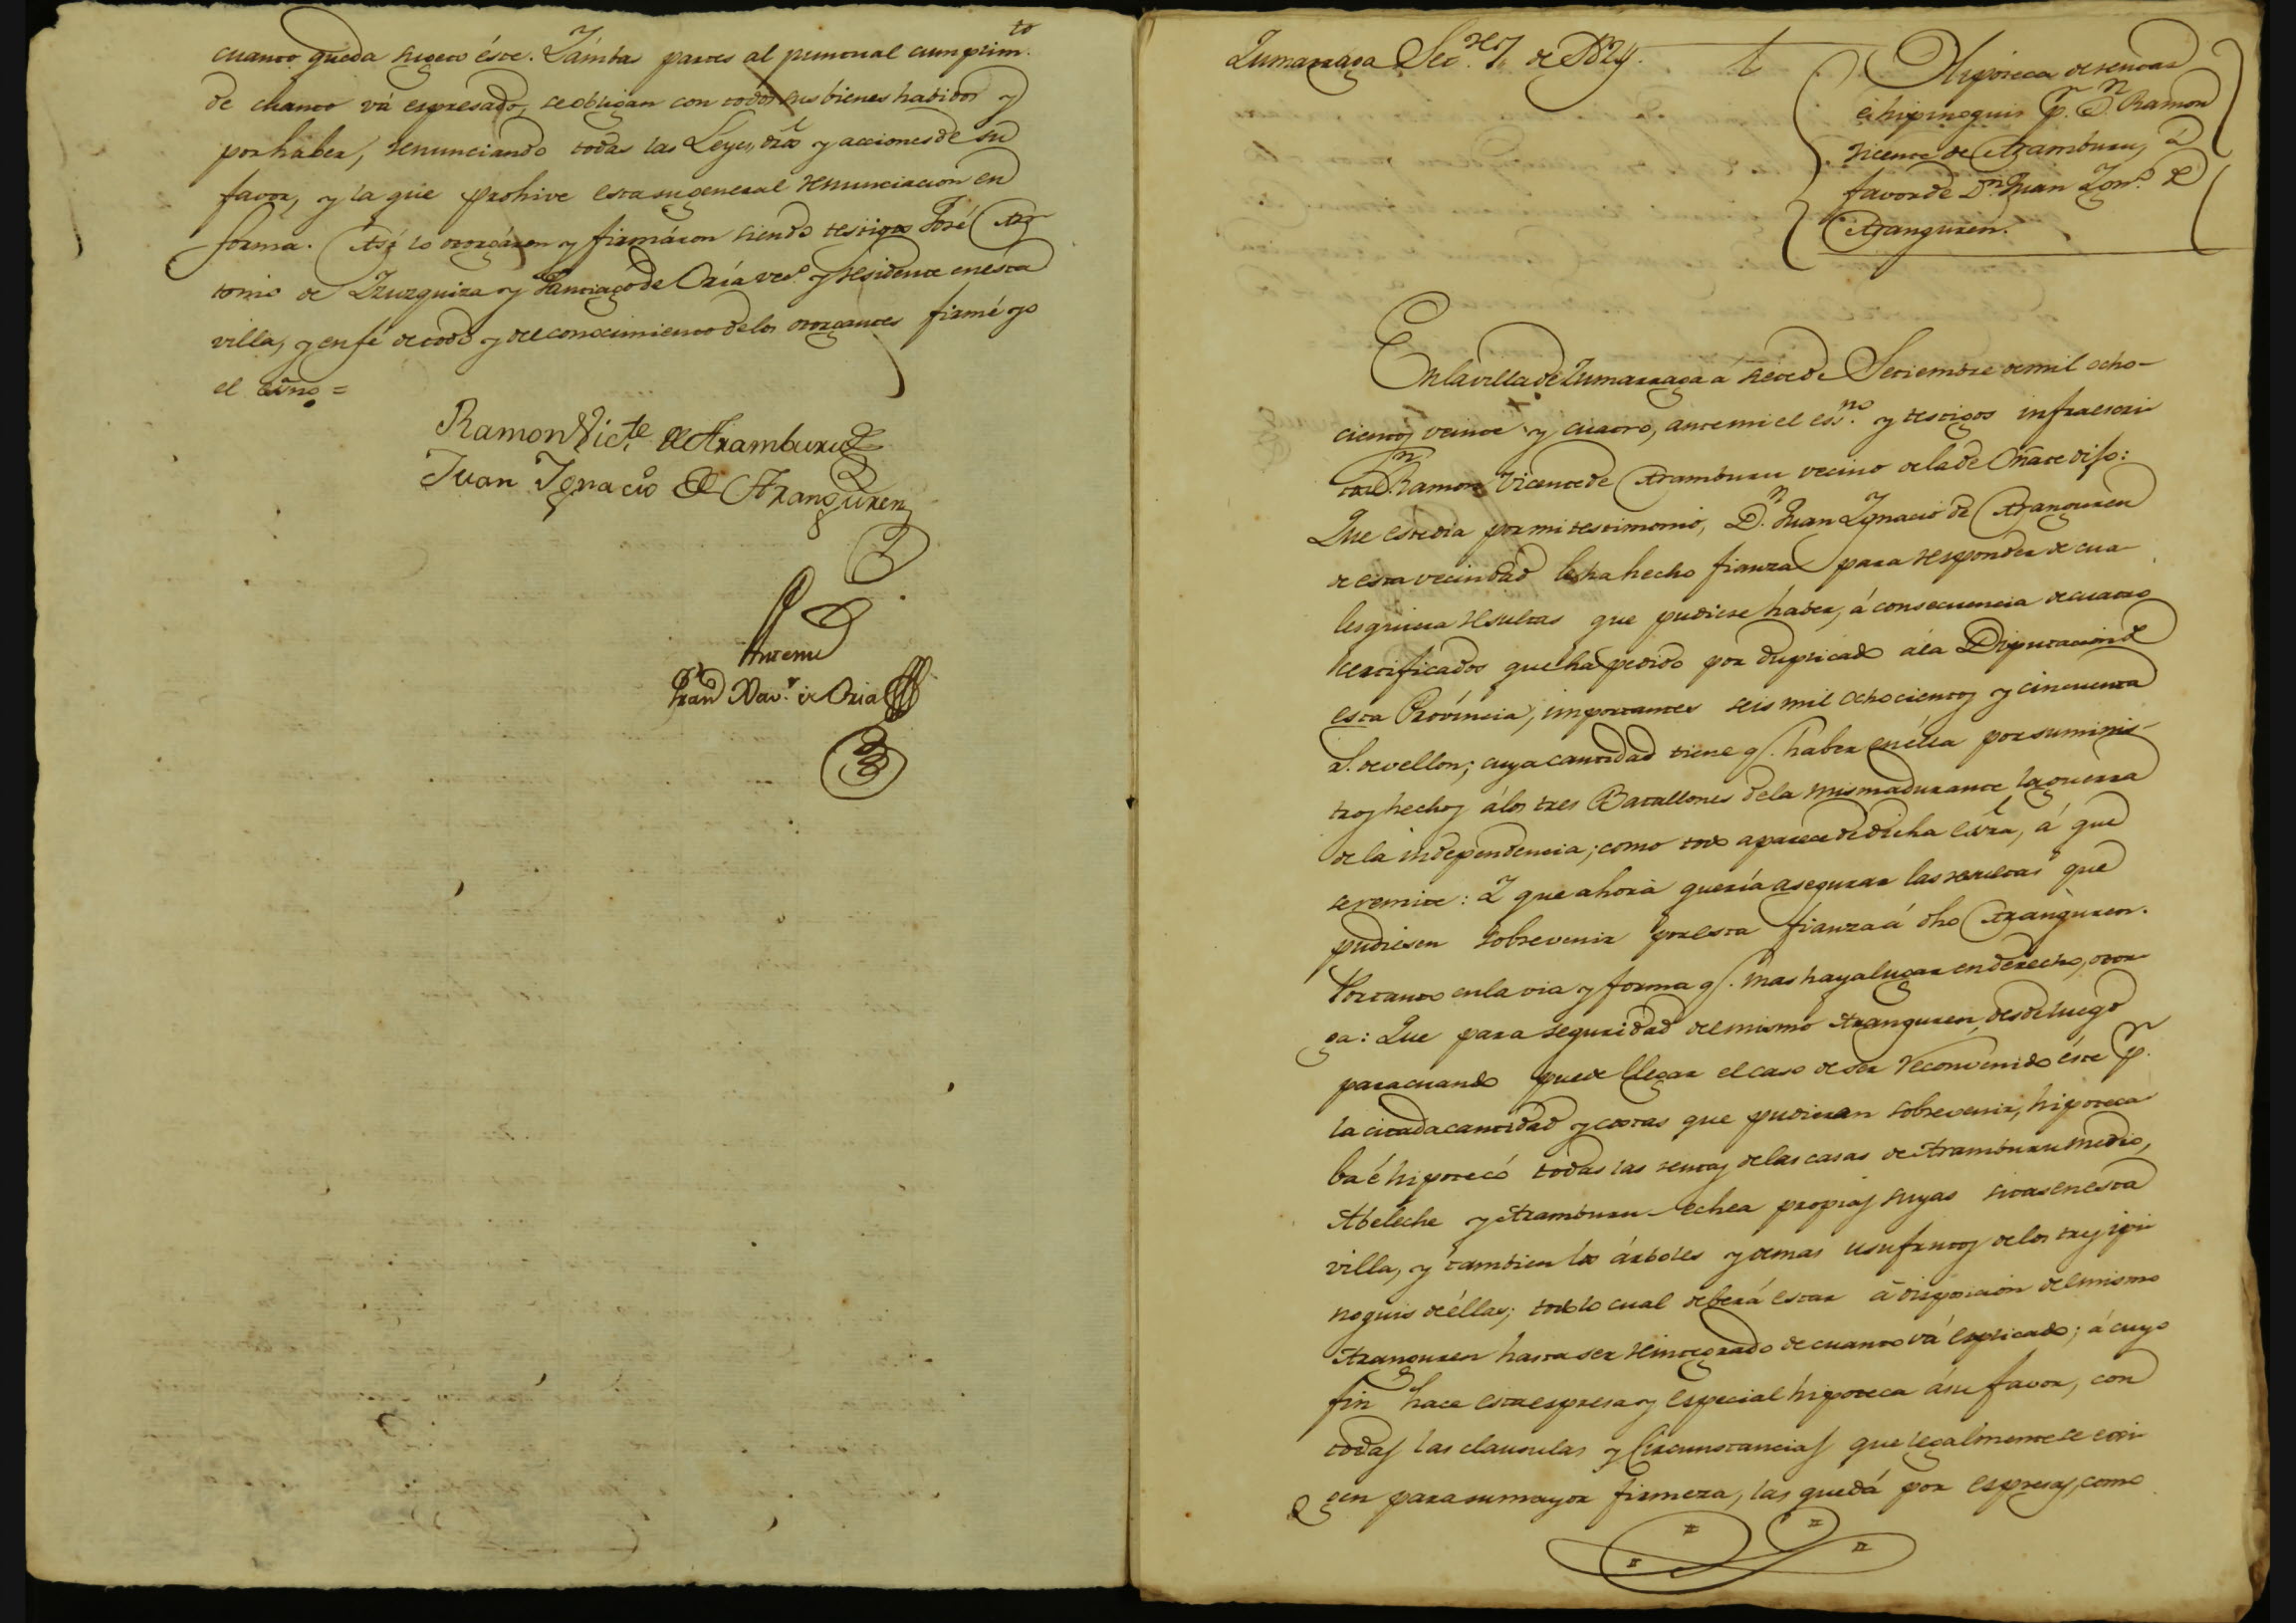 cuanto queda sugeto éste. Y ambas partes al puntual cumplim.to
de cuanto vá espresado, se obligan con todos sus bienes habidos y
por haber, renunciando todas las Leyes, dros y acciones de su
favor, y la que prohive esta su general renunciacion en
forma. Así lo otorgáron y firmáron siendo testigos José An
tonio de Yzuzquiza y Santiago de Oria vec.o y residente en esta
villa, y en fé de todo y del conocimiento delos otorgantes firmé yo
el esno =
Ramon Victe. de Aramburu
Juan Ygnacio de Aranguren
Antemi
Fran Xav.r de Oria
Zumarraga Sete. 7 de 1824.
Hipoteca de rentas
é hipinoguis p.r D.n Ramon
Vicente de Aramburu, á
favor de D.n Juan Ygn.o de
Aranguren.
En la villa de Zumarraga á siete de Setiembre de mil ocho-
cientos veinte y cuatro, ante mi el ess.no y testigos infraescri
tos D.n Ramon Vicente de Aramburu vecino de la de Oñate dijo:
Que este dia por mi testimonio, D.n Juan Ygnacio de Aranguren
de esta vecindad le ha hecho fianza para responder de cua
lesquiera resultas que pudiese haber, á consecuencia de cuatro
certificados que ha pedido por duplicado á la Diputacion de
esta Província, importantes seis mil ochocientos y cincuenta
r.s de vellon; cuya cantidad tiene q.e haber en élla por suminis-
tros hechos á los tres Batallones de la misma durante la guerra
de la independencia; como todo aparece de dicha esra, á que
se remite: Y que ahora quería asegurar las resultas que
pudiesen sobrevenir por esta fianza á dho Aranguren.
Portanto en la via y forma q.e mas haya lugar en derecho, otor
ga: Que para seguridad del mismo Aranguren, desde luego
para cuando puede llegar el caso de ser reconvenido éste p.r
la citada cantidad y costas que pudieran sobrevenir, hipoteca
ba é hipotecó todas las rentas de las casas de Aramburu medio,
Abeleche y Aramburu-echea propias suyas sitas en esta
villa, y tambien los árboles y demas usufrutos de los tres ipi
noguis de éllas; todo lo cual deberá estar á disposicion del mismo
Aranguren hasta ser reintegrado de cuanto vá esplicado; á cuyo
fin hace esta espresa y especial hipoteca á su favor, con
todas las clausulas y circunstancias que legalmente se exi
gen para su mayor firmeza, las que dá por espresas, como